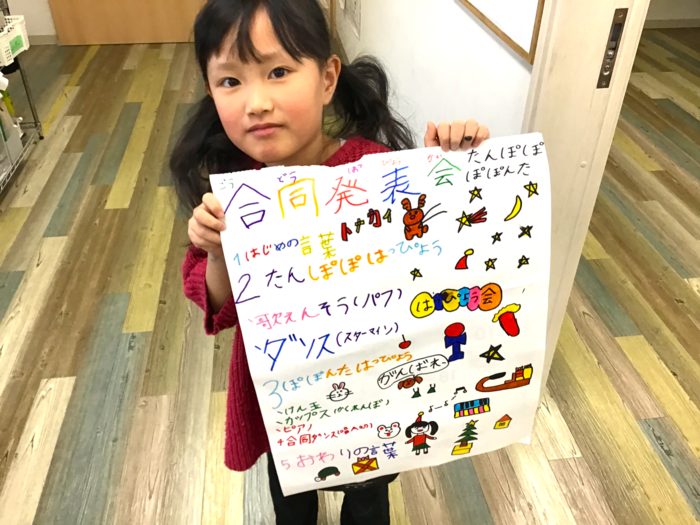 ごう どう はっ ぴょう かい
合同発表会 たんぽぽ
ぽぽんた
トナカイ
1 はじめの言葉
2 たんぽぽはっぴょう
歌えんそう(パフ)
はっぴょう会
ダンス(スターマイン)
3 ぽぽんたはっぴょう
がんばれー
けん玉
カップス
ピアノ
4 合同ダンス
5 おわりの言葉